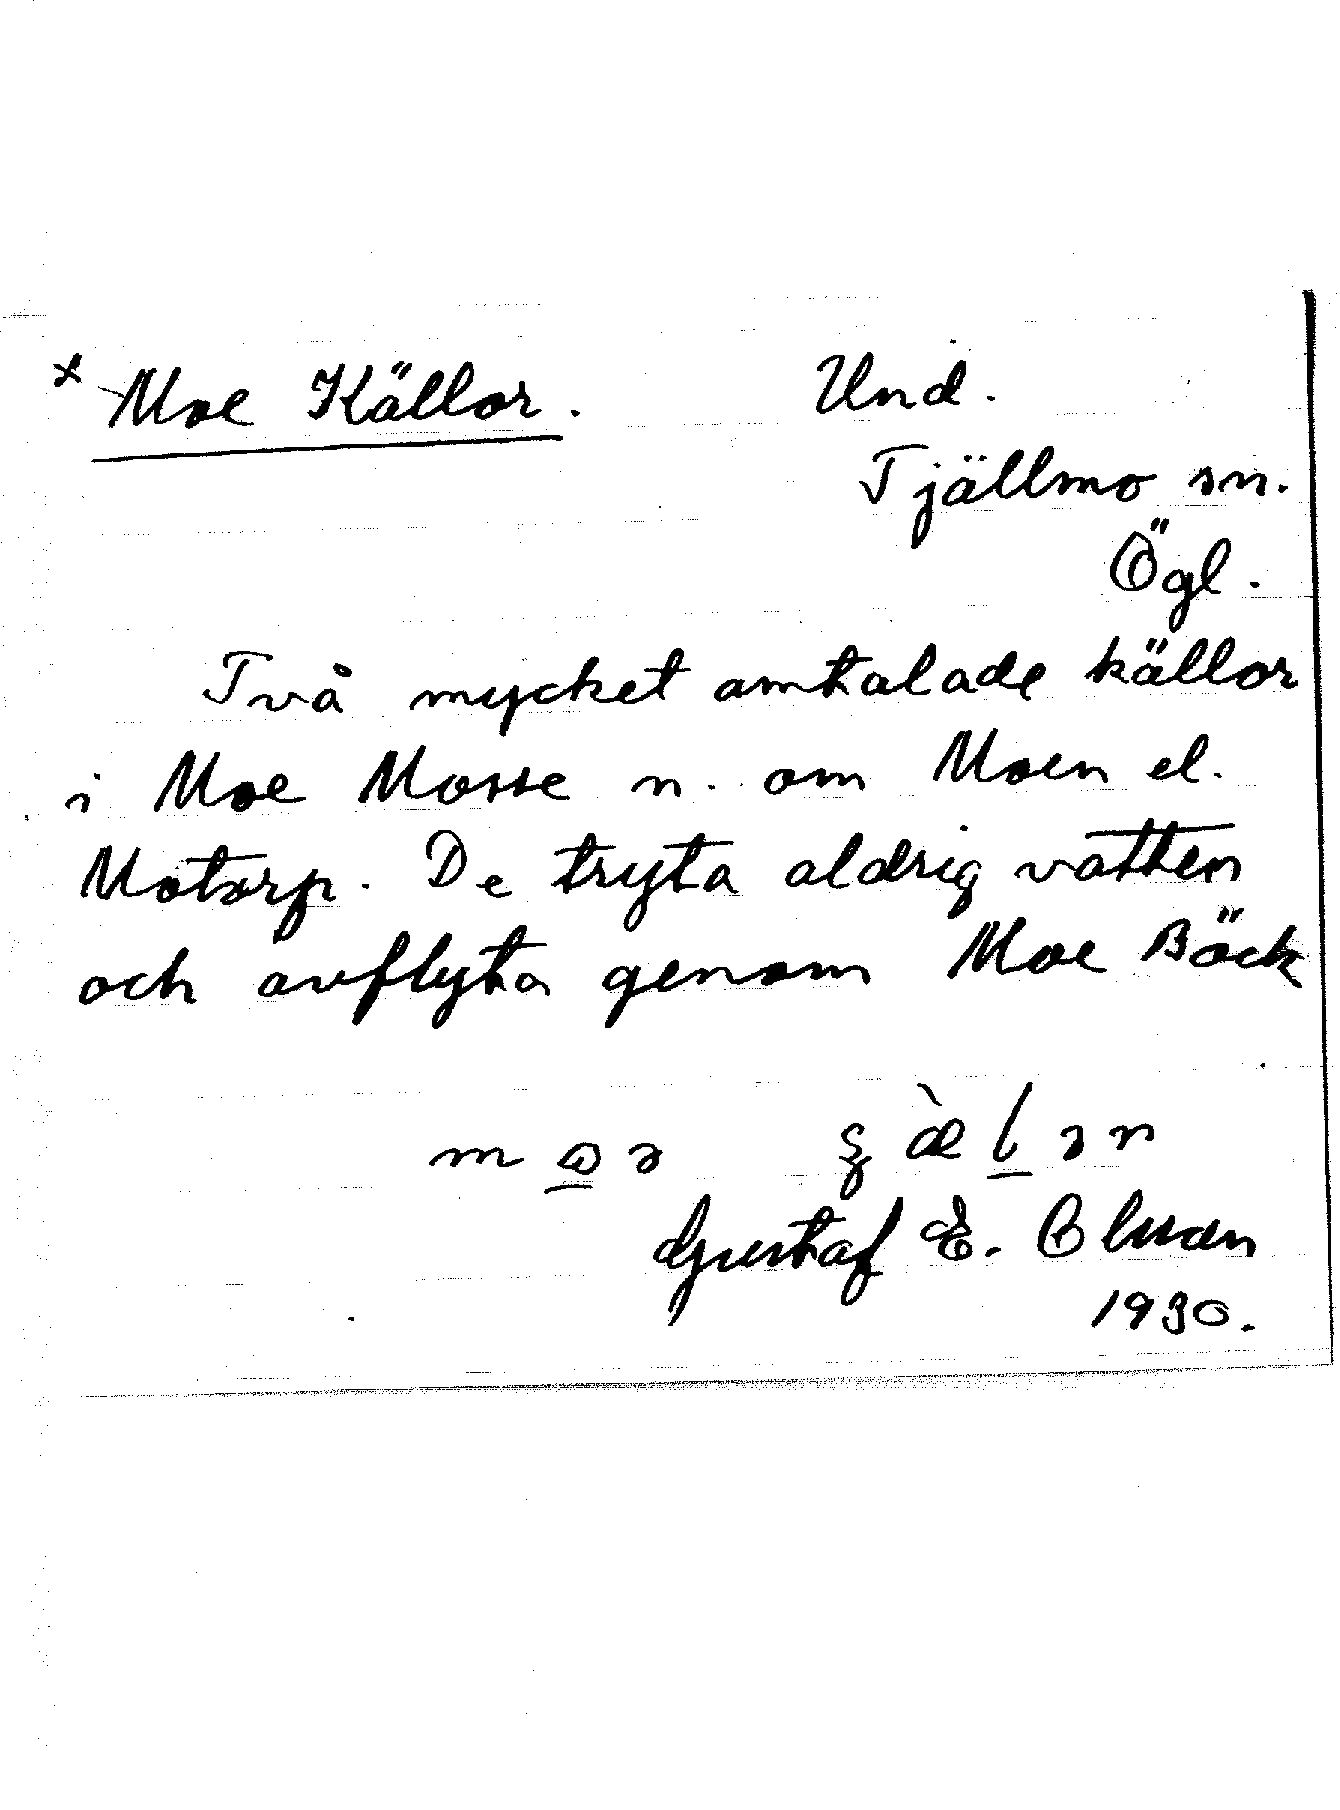 x Moe Källor. Und.
Tjällmo sn.
Ögl.
Två mycket omtalade källor
i Moe Mosse n. om Moen el.
Motorp. De tryta aldrig vatten
och avflyta genom Moe Bäck
Gustaf E. Olsson
1930.